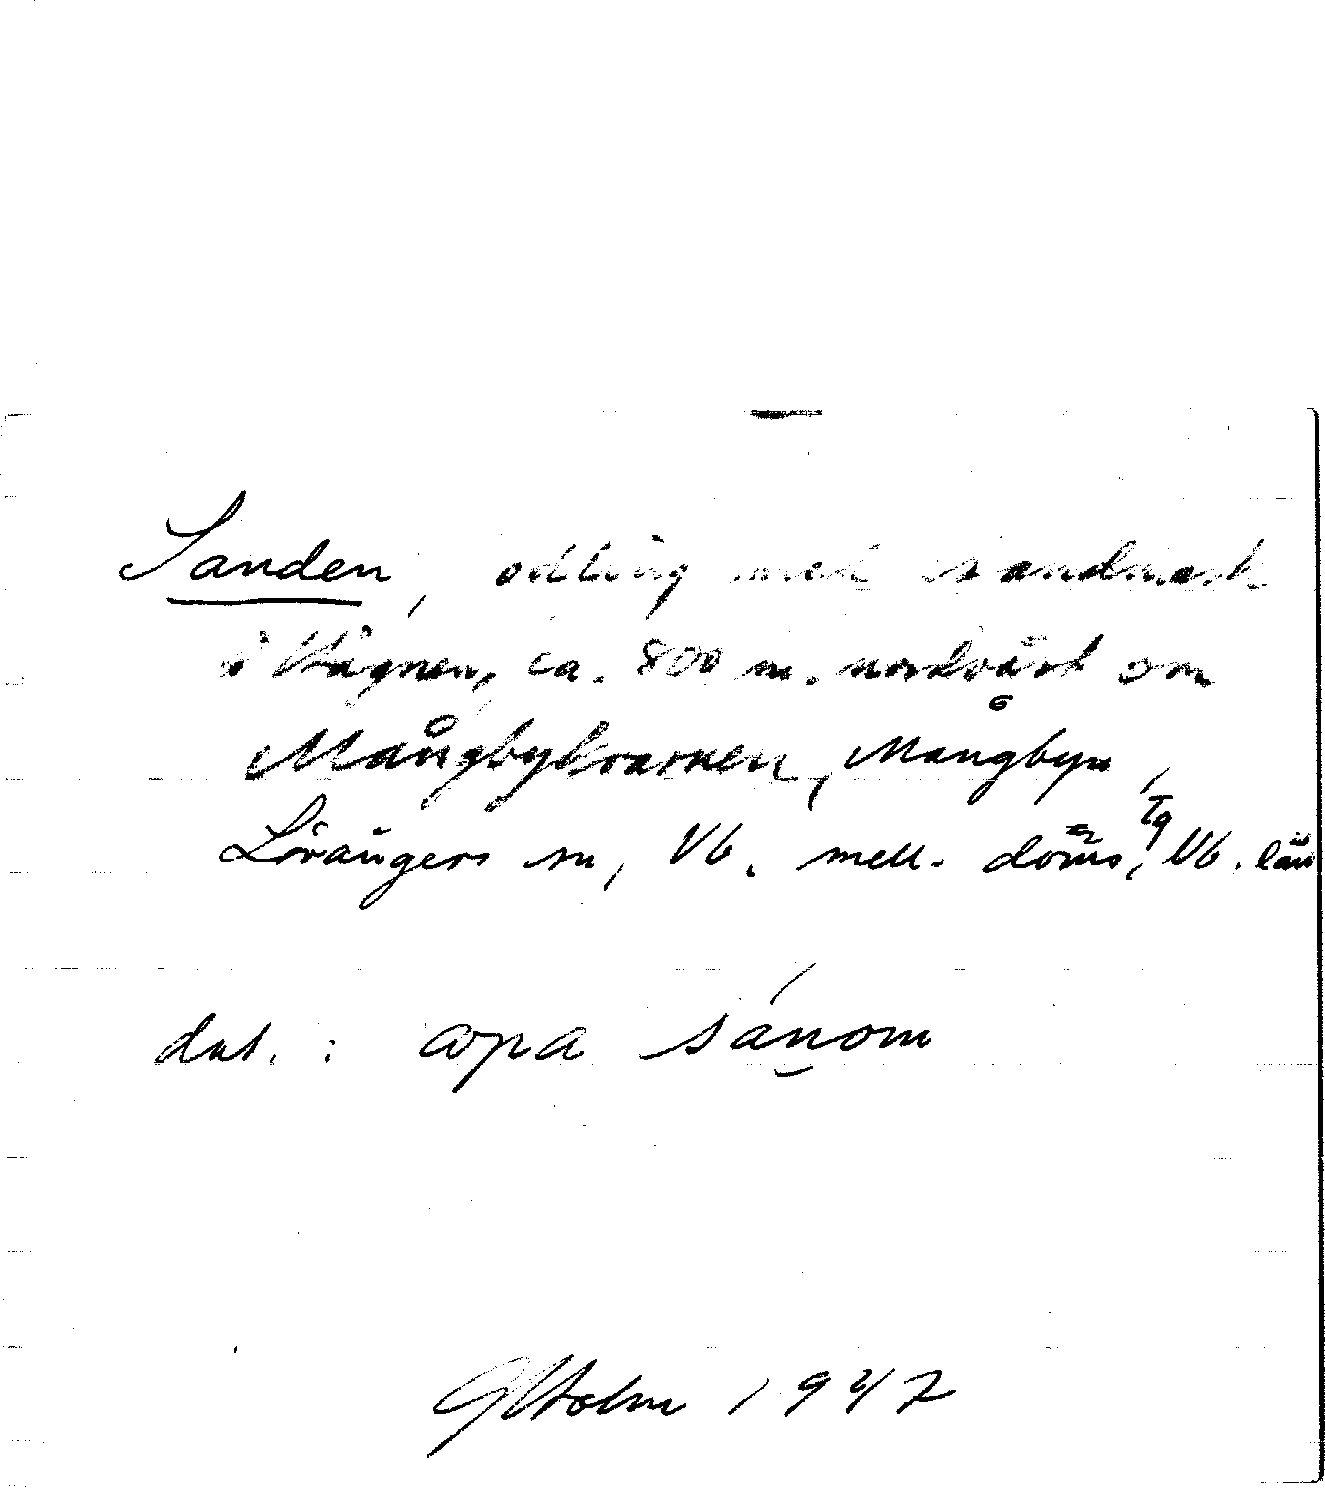 Sanden, odling med sandmark
i Hägnen, ca. 800 m. nordväst om
Mångbykvarnen, Mångbyn,
Lövångers sn, Vb. mell. doms. Tg, Vb. län
dat. : opa sánom
GHolm 1947